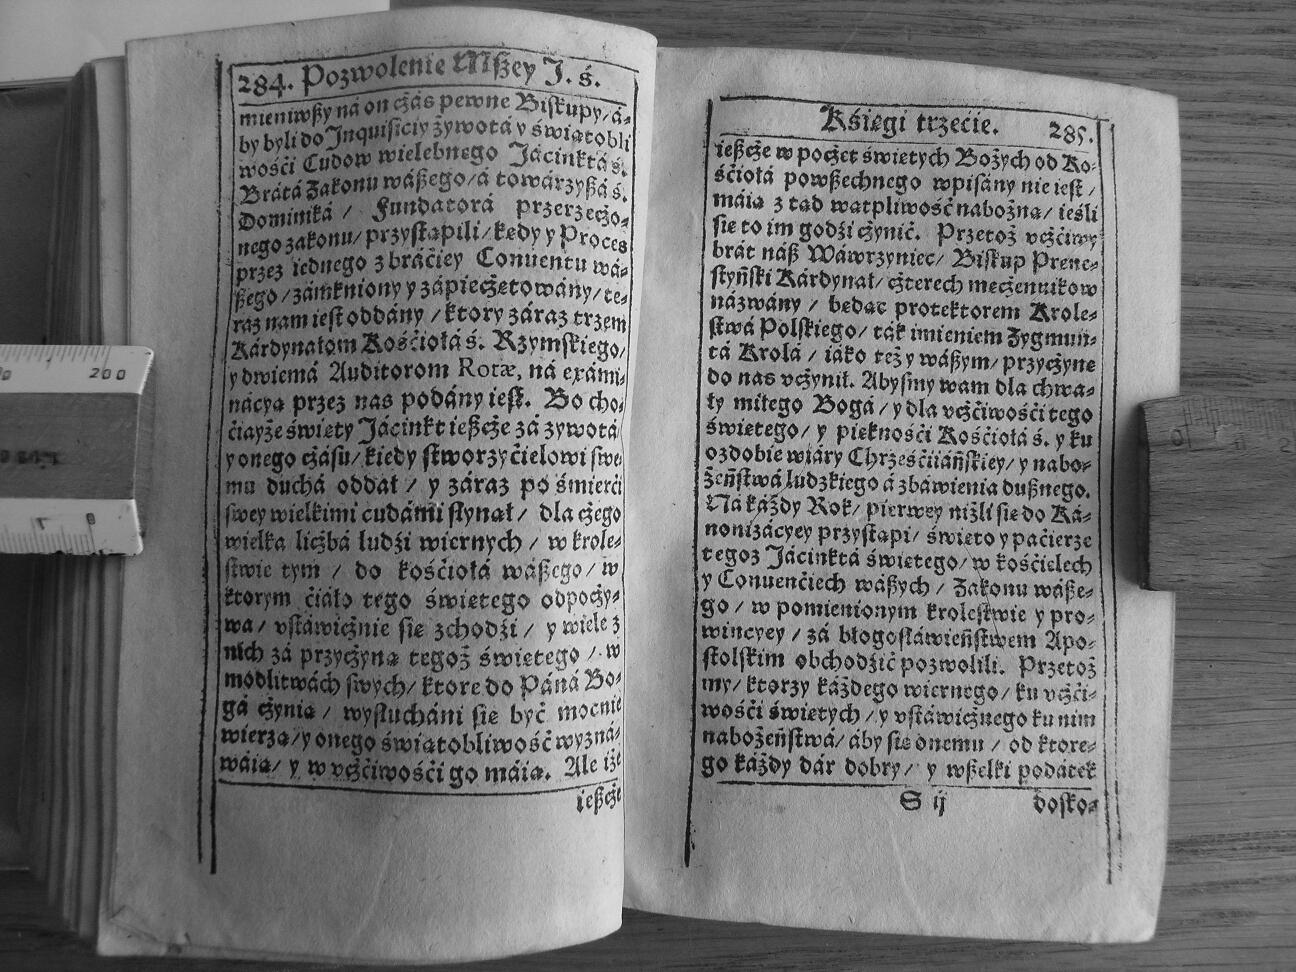 284. Pozwolenie Mßey J. ś.
mieniwßy ná on cżás pewne Biſkupy/ á-
by byli do Jnquiſiciy żywotá y świątobli
wośći Cudow wielebnego Jácinktá ś.
Brátá Zakonu wáßego/ á towárzyßá ś.
Dominiká / Fundatorá przerzecżo-
nego zakonu/ przyſtąpili/ kędy y Proces
przez iednego z bráćiey Conuentu wá-
ßego/ zámkniony y zápiecżętowány/ te-
raz nam ieſt oddány / ktory záraz trzem
Kárdynałom Kośćiołá ś. Rzymſkiego/
y dwiemá Auditorom Rotæ, ná exámi-
nácyą przez nas podány ieſt. Bo cho-
ćiayże święty Jácinkt ießcże zá żywotá
y onego cżáſu/ kiedy ſtworzyćielowi ſwe
mu duchá oddał / y záraz po śmierći
ſwey wielkimi cudámi ſłynął/ dla cżego
wielka licżbá ludźi wiernych / w krole-
ſtwie tym / do kośćiołá wáßego/ w
ktorym ćiáło tego świętego odpocży-
wa/ vſtáwicżnie ſię zchodźi / y wiele z
nich zá przycżyną tegoż świętego / w
modlitwách ſwych/ ktore do Páná Bo-
gá cżynią / wyſłucháni ſię być mocnie
wierzą/ y onego świątobliwość wyzná-
wáią/ y w vcżćiwośći go máią. Ale iże
ießcże
Kśięgi trzecie. 285.
ießcże w pocżet świętych Bożych od Ko-
śćiołá powßechnego wpiſány nie ieſt /
máią z tąd wątpliwość nabożną/ ieśli
ſię to im godźi cżynić. Przetoż vcżćiwy
brát náß Wáwrzyniec/ Biſkup Prene-
ſtyńſki Kárdynał/ cżterech męcżennikow
názwány / będąc protektorem Krole-
ſtwá Polſkiego/ ták imieniem Zygmun-
tá Krolá / iáko też y wáßym/ przycżynę
do nas vcżynił. Abyſmy wam dla chwa-
ły miłego Bogá / y dla vcżćiwośći tego
świętego/ y pięknośći Kośćiołá ś. y ku
ozdobie wiáry Chrześćiiáńſkiey/ y nabo-
żeńſtwá ludzkiego á zbáwienia dußnego.
Ná káżdy Rok/ pierwey niżli ſię do Ká-
nonizácyey przyſtąpi/ święto y paćierze
tegoż Jácinktá świętego/ w kośćielech
y Conuenćiech wáßych / Zakonu wáße-
go / w pomienionym kroleſtwie y pro-
wincyey / zá błogoſłáwieńſtwem Apo-
ſtolſkim obchodźić pozwolili. Przetoż
my/ ktorzy káżdego wiernego/ ku vcżći-
wośći świętych / y vſtáwicżnego ku nim
nabożeńſtwá/ áby ſię onemu / od ktore-
go káżdy dár dobry/ y wßelki podátek
S ij doſko-